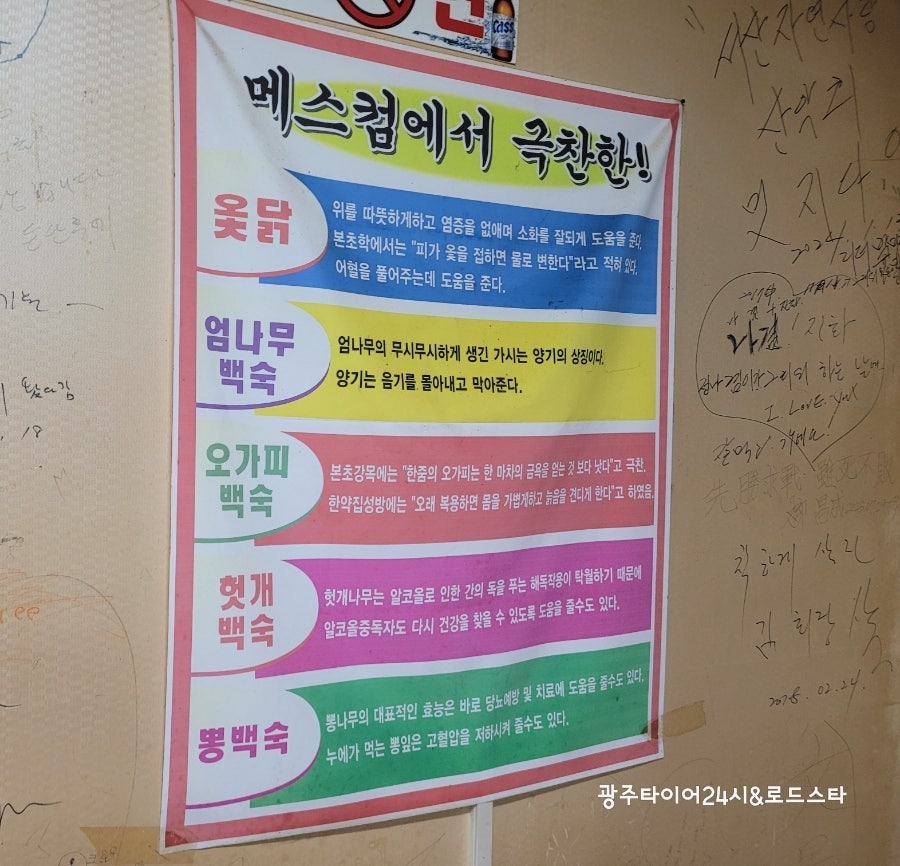 cass
메스컴에서 극찬한!!
옻닭
위를 따뜻하게하고 염증을 없애며 소화를 잘되게 도움을 준다.
본초학에서는 "피가 옻을 접하면 물로 변한다"라고 적혀 있다.
어혈을 풀어주는데 도움을 준다.
엄나무
백숙
엄나무의 무시무시하게 생긴 가시는 양기의 상징이다.
양기는 음기를 몰아내고 막아준다.
오가피
백숙
본초강목에는 "한줌의 오가피는 한 마차의 금옥을 얻는 것 보다 낫다"고 극찬.
한약집성방에는 "오래 복용하면 몸을 가볍게하고 늙음을 견디게 한다"고 하였음.
헛개
백숙
헛개나무는 알코올로 인한 간의 독을 푸는 해독작용이 탁월하기 때문에
알코올중독자도 다시 건강을 찾을 수 있도록 도움을 줄수도 있다.
뽕백숙
뽕나무의 대표적인 효능은 바로 당뇨예방 및 치료에 도움을 줄수도 있다.
누에가 먹는 뽕잎은 고혈압을 저하시켜 줄수도 있다.
멋지다
2024
나결! 지화
하는 날에
I Love You
김희랑
02.24.
18
광주타이어24시&로드스타